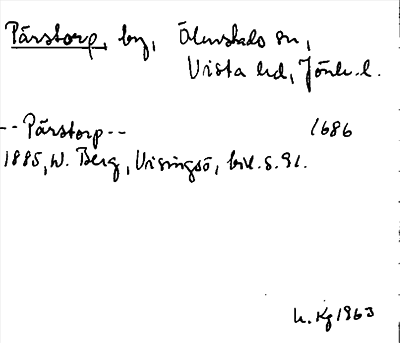 Pärstorp, by, Ölmstads sn,
Vista hd, Jönk. l.
-- Pärstorp -- 1686
1885, W. Berg, Visingsö, bil. s. 91.
h. Kg 1963